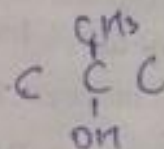 CH3
C C C
OH